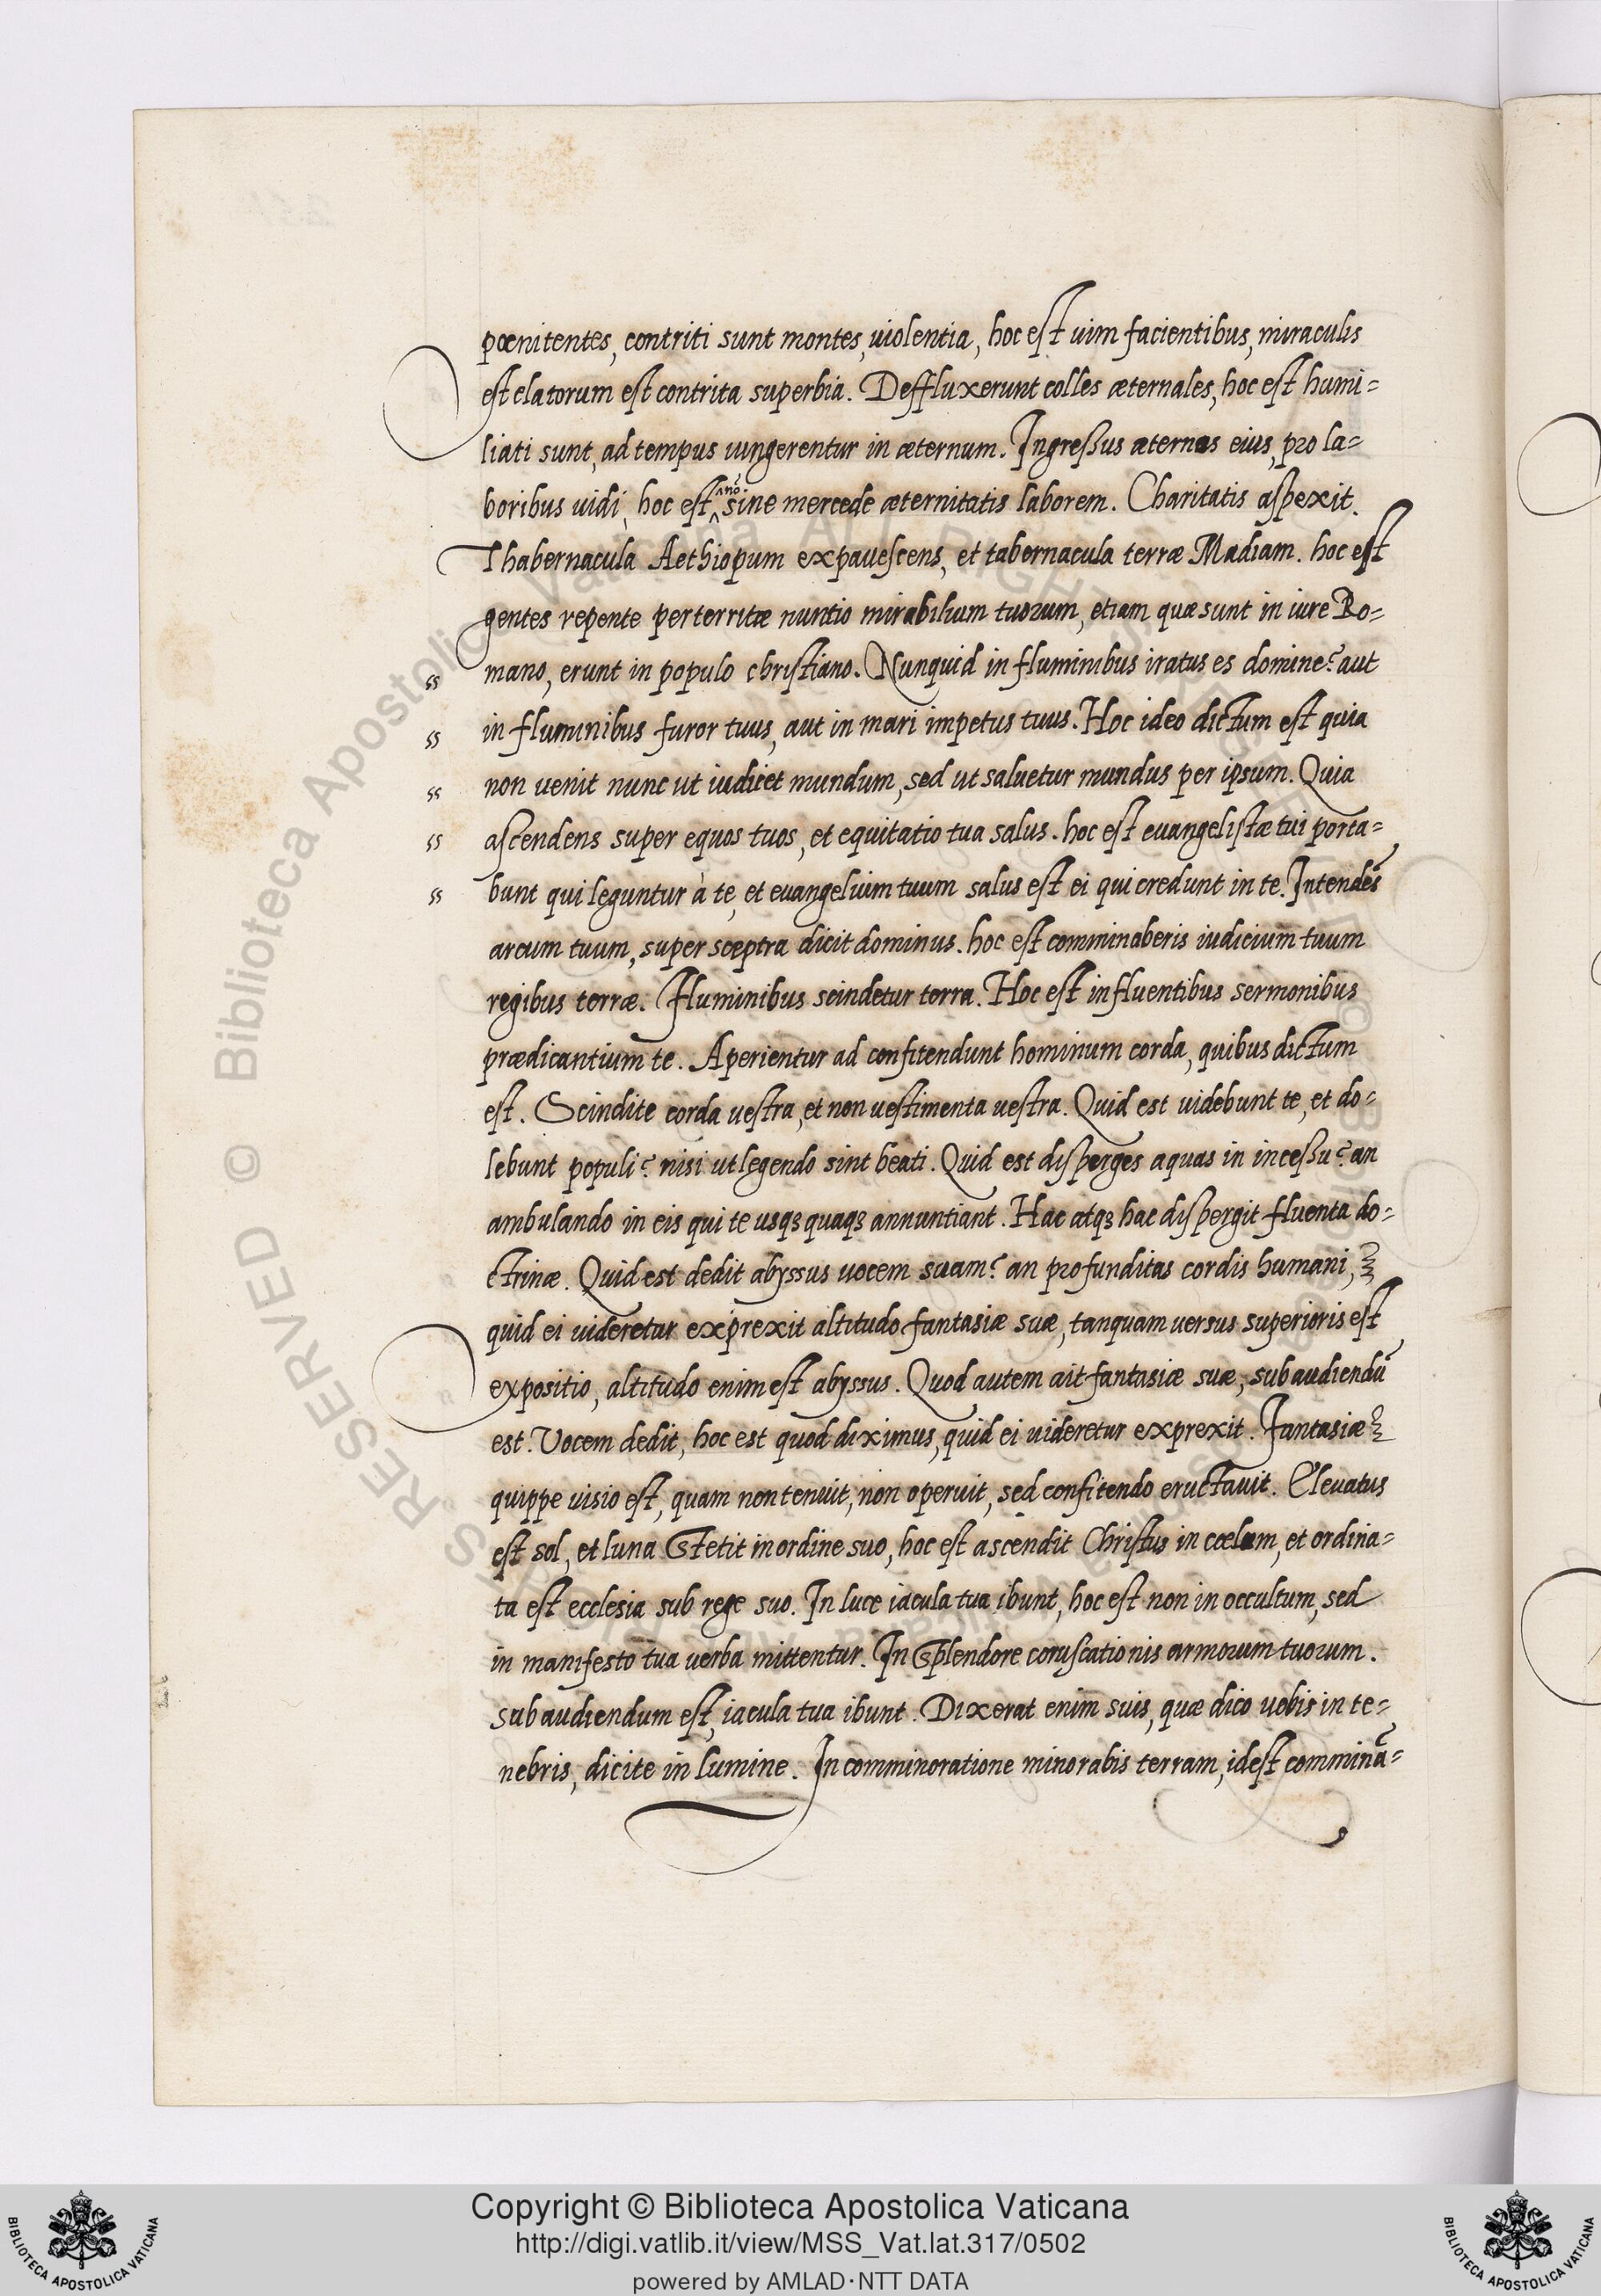 pœnitentes, contriti sunt montes, uiolentia, hoc est uim facientibus, miraculis
est elatorum est contrita superbia. Deffluxerunt colles æternales, hoc est humi=
liati sunt, ad tempus iungerentur in æternum. Ingressus æternos eius, pro la=
boribus uidi, hoc est nō sine mercede æternitatis laborem. Charitatis aspexit.
Thabernacula Aethiopum expauescens, et tabernacula terræ Madiam. hoc est
gentes repente perterritæ nuntio mirabilium tuorum, etiam quæ sunt in iure Ro=
mano, erunt in populo christiano. Nunquid in fluminibus iratus es domine? aut
in fluminibus furor tuus, aut in mari impetus tuus. Hoc ideo dictum est quia
non uenit nunc ut iudicet mundum, sed ut saluetur mundus per ipsum. Quia
ascendens super equos tuos, et equitatio tua salus. hoc est euangelistæ tui porta=
bunt qui leguntur à te, et euangelium tuum salus est ei qui credunt in te. Intendēs
arcum tuum, super sceptra dicit dominus. hoc est comminaberis iudicium tuum
regibus terræ. Fluminibus scindetur terra. Hoc est influentibus sermonibus
prædicantium te. Aperientur ad confitendunt hominum corda, quibus dictum
est. Scindite corda uestra, et non uestimenta uestra. Quid est uidebunt te, et do=
lebunt populi? nisi ut legendo sint beati. Quid est disperges aquas in incessu? an
ambulando in eis qui te usqꝫ quaqꝫ annuntiant. Hac atqꝫ hac dispergit fluenta do=
ctrinæ. Quid est dedit abyssus uocem suam? an profunditas cordis humani,
quid ei uideretur exprexit altitudo fantasiæ suæ, tanquam uersus superioris est
expositio, altitudo enim est abyssus. Quod autem ait fantasiæ suæ, subaudiendū
est. Uocem dedit, hoc est quod diximus, quid ei uideretur exprexit. Fantasiæ
quippe uisio est, quam non tenuit, non operuit, sed confitendo eructauit. Eleuatus
est sol, et luna Stetit in ordine suo, hoc est ascendit Christus in cœlum, et ordina=
ta est ecclesia sub rege suo. In luce iacula tua ibunt, hoc est non in occultum, sed
in manifesto tua uerba mittentur. In Splendore coruscationis armorum tuorum.
subaudiendum est, iacula tua ibunt. Dixerat enim suis, quæ dico uobis in te=
nebris, dicite in lumine. In comminoratione minorabis terram, idest comminā=
Copyright © Biblioteca Apostolica Vaticana
http://digi.vatlib.it/view/MSS_Vat.lat.317/0502
powered by AMLAD·NTT DATA